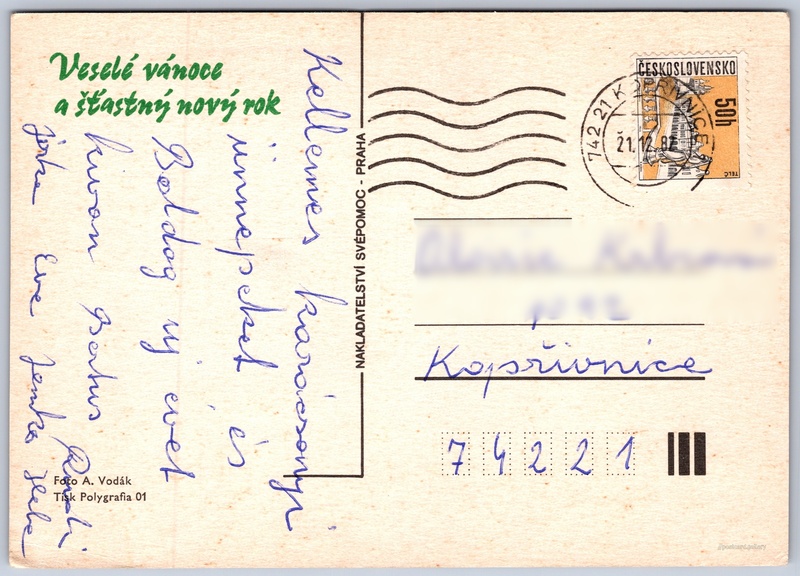 Veselé vánoce
a šťastný nový rok
Kellemes karácsonyi
ünnepeket és
Boldog uj evet
kivan Bartus
Jirka Eva Jenka
Foto A. Vodák
Tisk Polygrafia 01
NAKLADATELSTVÍ SVÉPOMOC - PRAHA
ČESKOSLOVENSKO
50h
TELČ
742 21 KOPŘIVNICE
21.12.82
Kopřivnice
74221